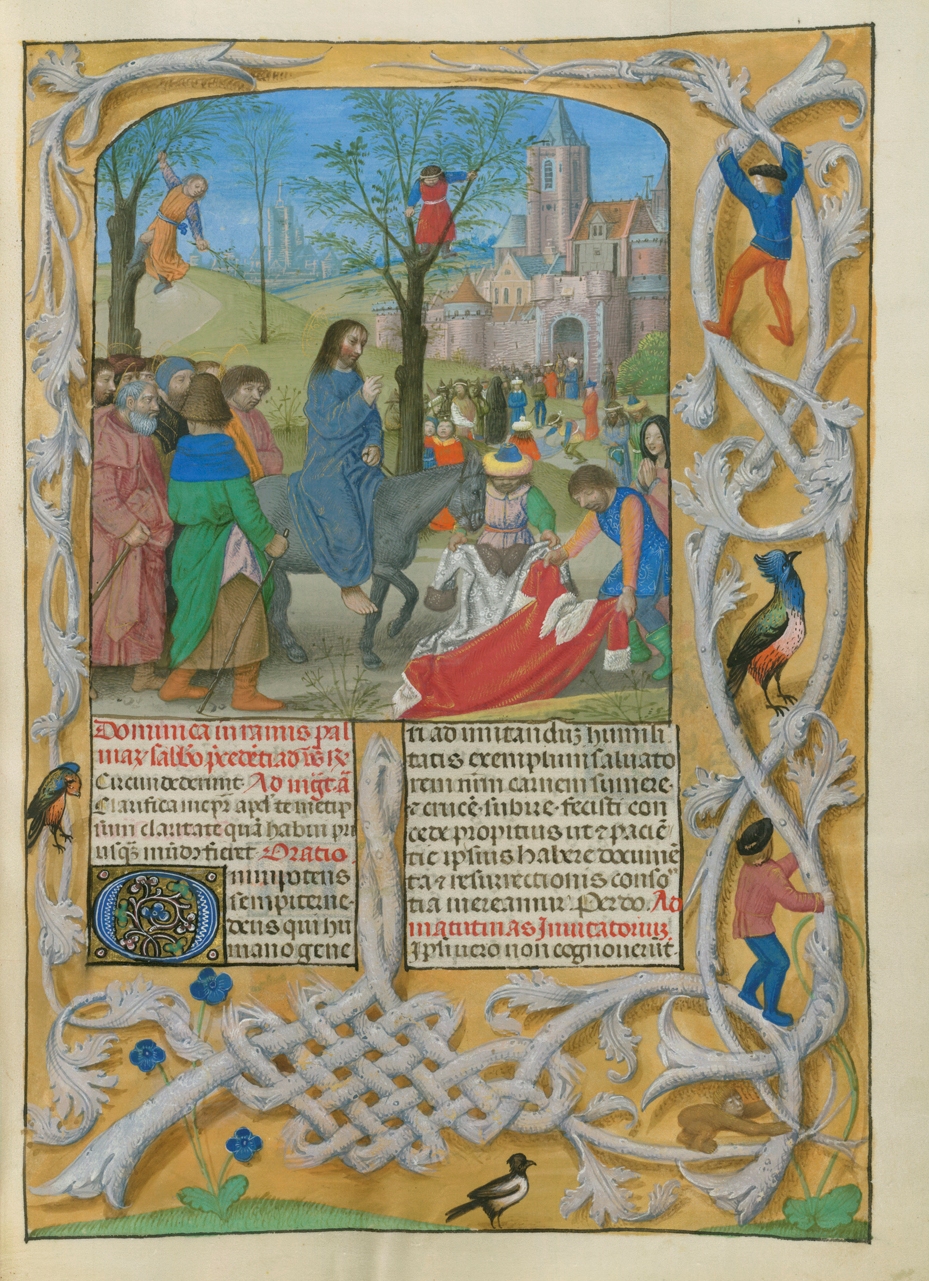 Dominica in ramis pal
mar sabbo p̄cedēti ad v̄s R̄
Circundederunt. Ad mgt̄ a͞
Clarifica me pr̄ apd̄ te metip
sum claritate quā habui pri
usq̄ mūdꝰ fieret Oratio
Omnipotens
sempiterne
deus qui hu
mano gene
ri ad imitanduꝫ humili
tatis exemplum saluato
rem n̄rm carnem sumere
⁊ crucē subire fecisti con
cede propitius ut ⁊ paciē
tie ipsius habere documē
ta ⁊ resurrectionis conso
tia mereamur. Per do. Ad
matutinas Inuitatoriuꝫ.
Ipsi uero non cognouerūt.